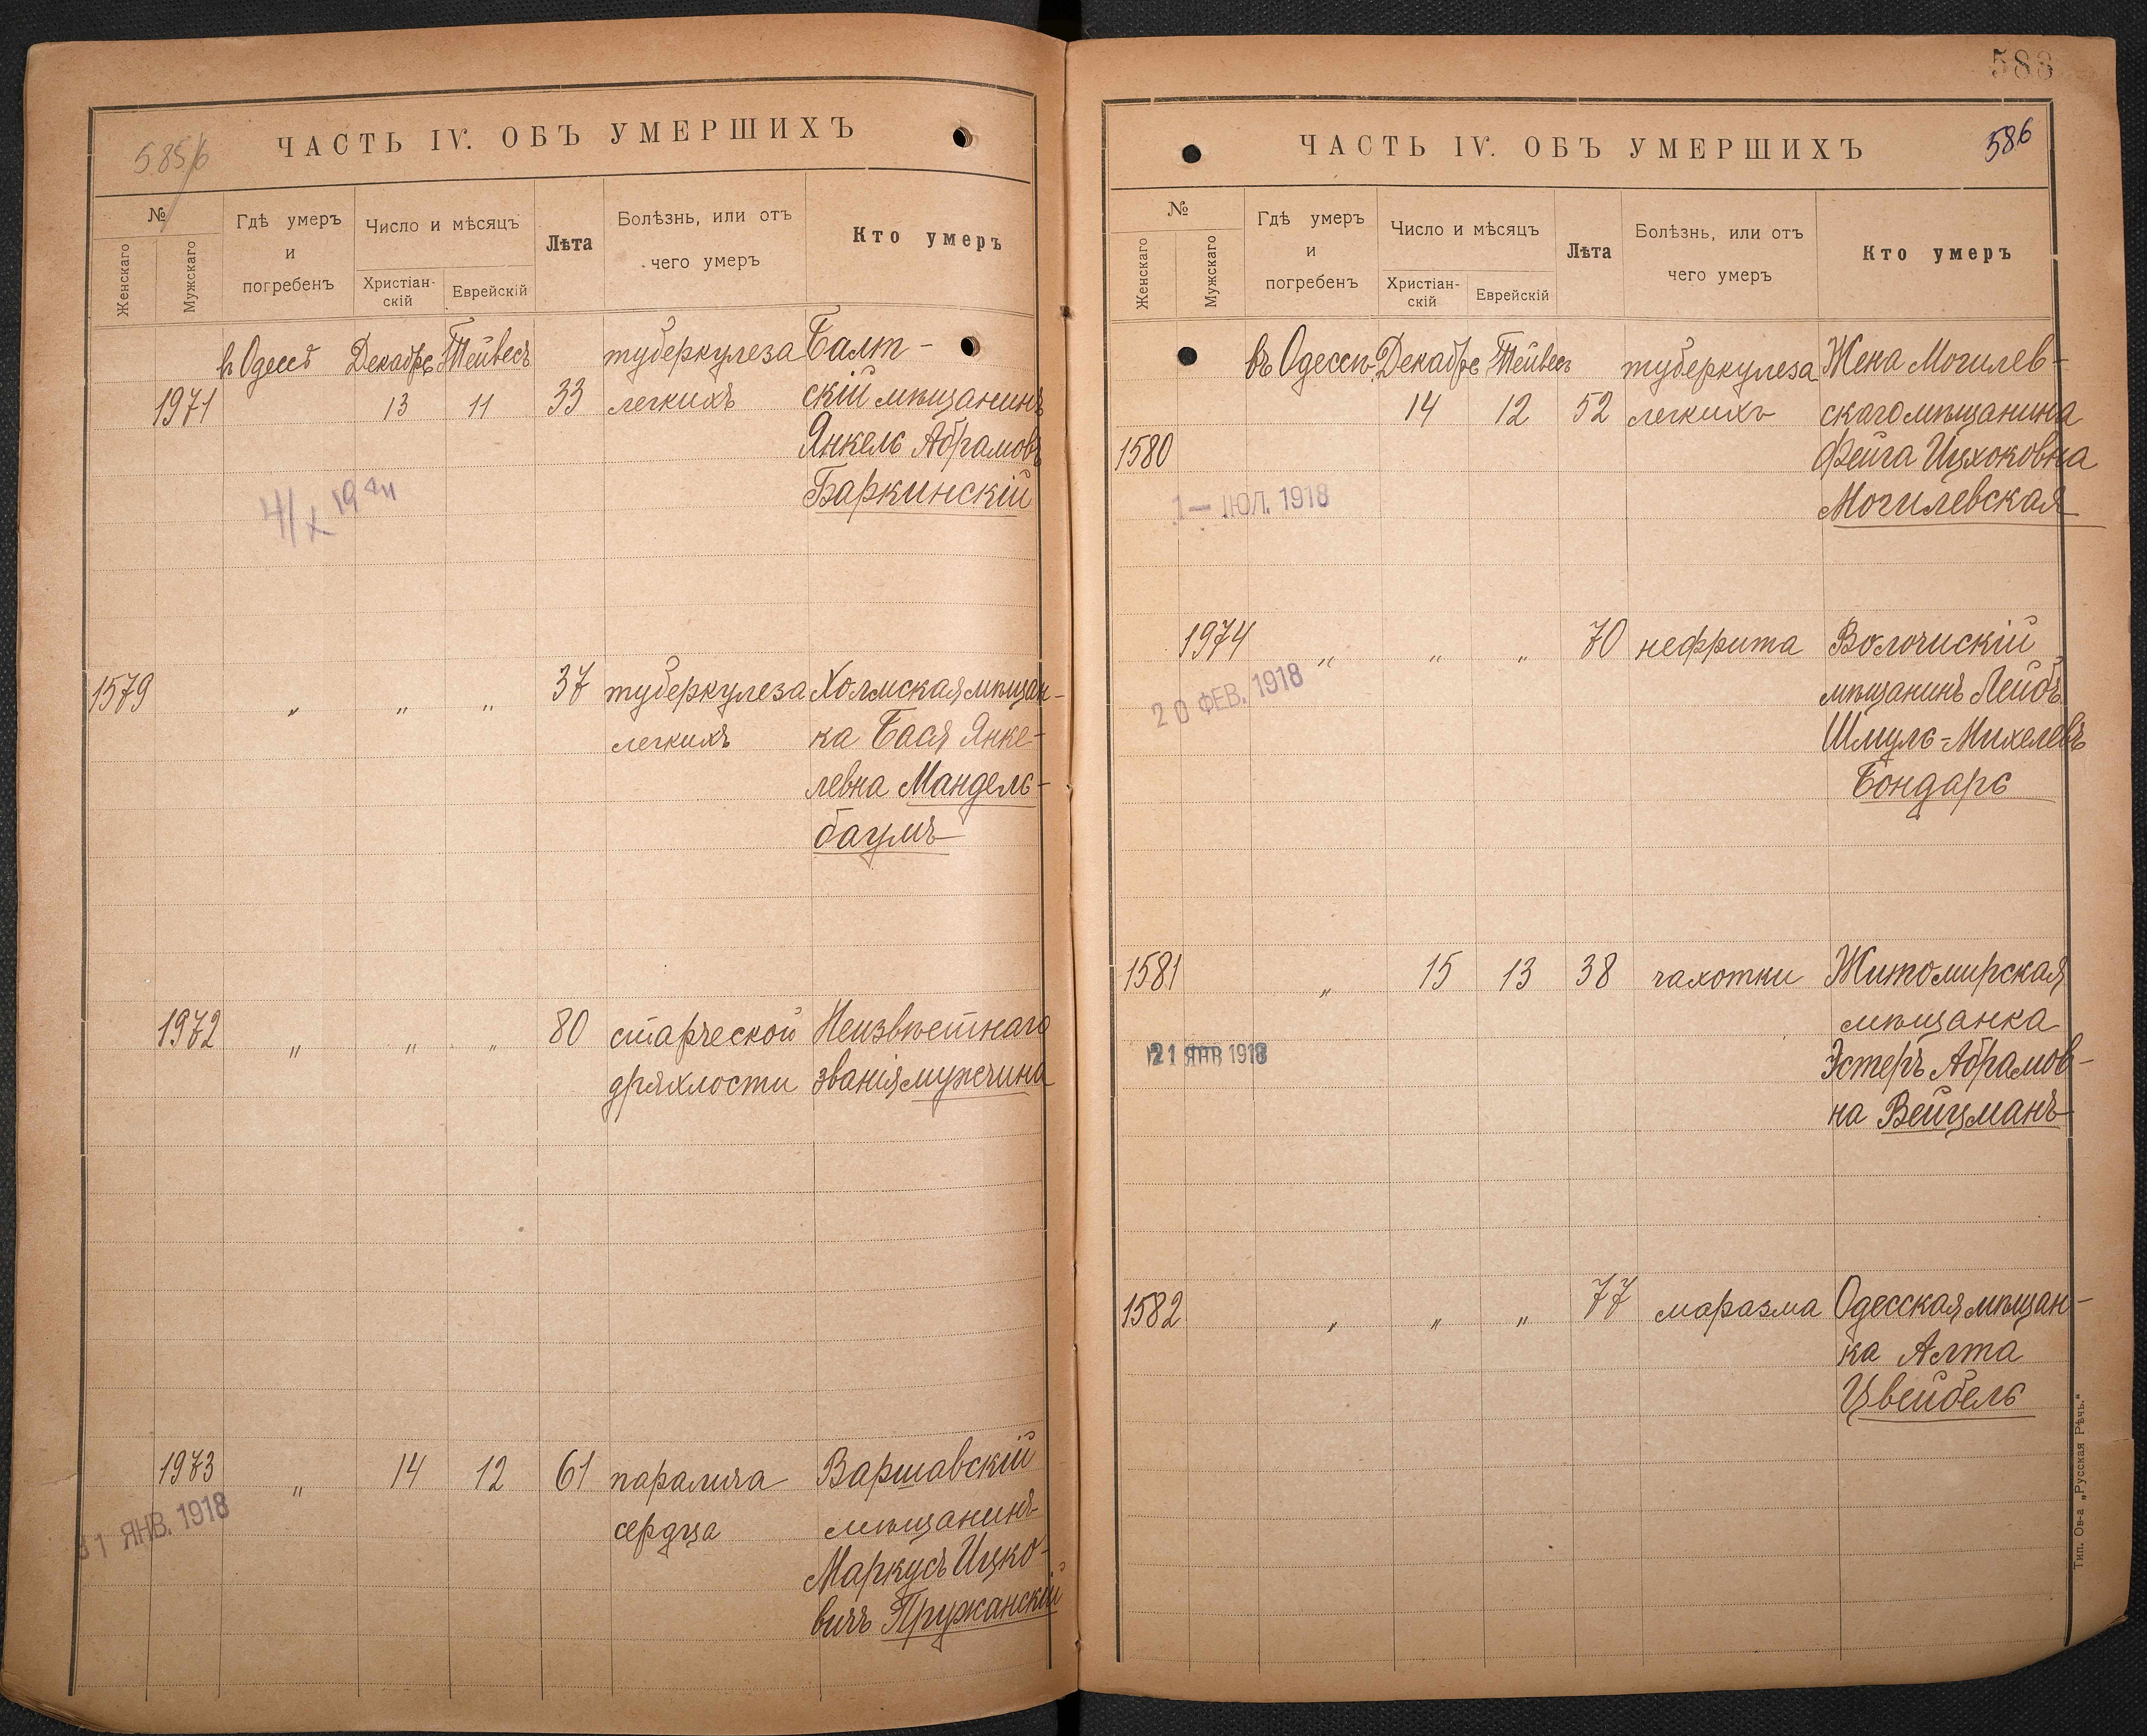 585/6
ЧАСТЬ IV. ОБЪ УМЕРШИХЪ
№
Женскаго
Мужскаго
Гдѣ умеръ
и
погребенъ
Число и мѣсяцъ
Христіан-
скій
Еврейскій
Лѣта
Болѣзнь, или отъ
чего умеръ
Кто умеръ
в Одессѣ Декабрь Тейвесъ туберкулеза Балт-
1971 13 11 33 легкихъ скій мѣщанинъ
Янкель Абрамовъ
Баркинскій
1579 " " " 37 туберкулеза Холмская мѣщан-
легкихъ ка Бася Янке-
левна Мандель-
баумъ
1972 " " " 80 старческой Неизвѣстнаго
дряхлости званія мужчина
1973 " 14 12 61 паралича Варшавскій
31 ЯНВ. 1918
сердца мѣщанинъ
Маркусъ Ицко-
вичъ Пружанскій
588
586
ЧАСТЬ IV. ОБЪ УМЕРШИХЪ
№
Женскаго
Мужскаго
Гдѣ умеръ
и
погребенъ
Число и мѣсяцъ
Христіан-
скій
Еврейскій
Лѣта
Болѣзнь, или отъ
чего умеръ
Кто умеръ
въ Одессѣ Декабрь Тейвесъ туберкулеза Жена Могилев-
14 12 52 легкихъ скаго мѣщанина
1580 Фейга Ицхоковна
Могилевская
1 – ІЮЛ. 1918
1974 " " " 70 нефрита Волочискій
20 ФЕВ. 1918
мѣщанинъ Лейбъ
Шмуль-Михелевъ
Бондарь
1581 " 15 13 38 чахотки Житомирская
мѣщанка
21 ЯНВ 1918
Эстеръ Абрамов-
на Вейцманъ
1582 " " " 77 маразма Одесская мѣщан-
ка Алта
Цвейбель
Тип. Ов-а „Русская Рѣчь."